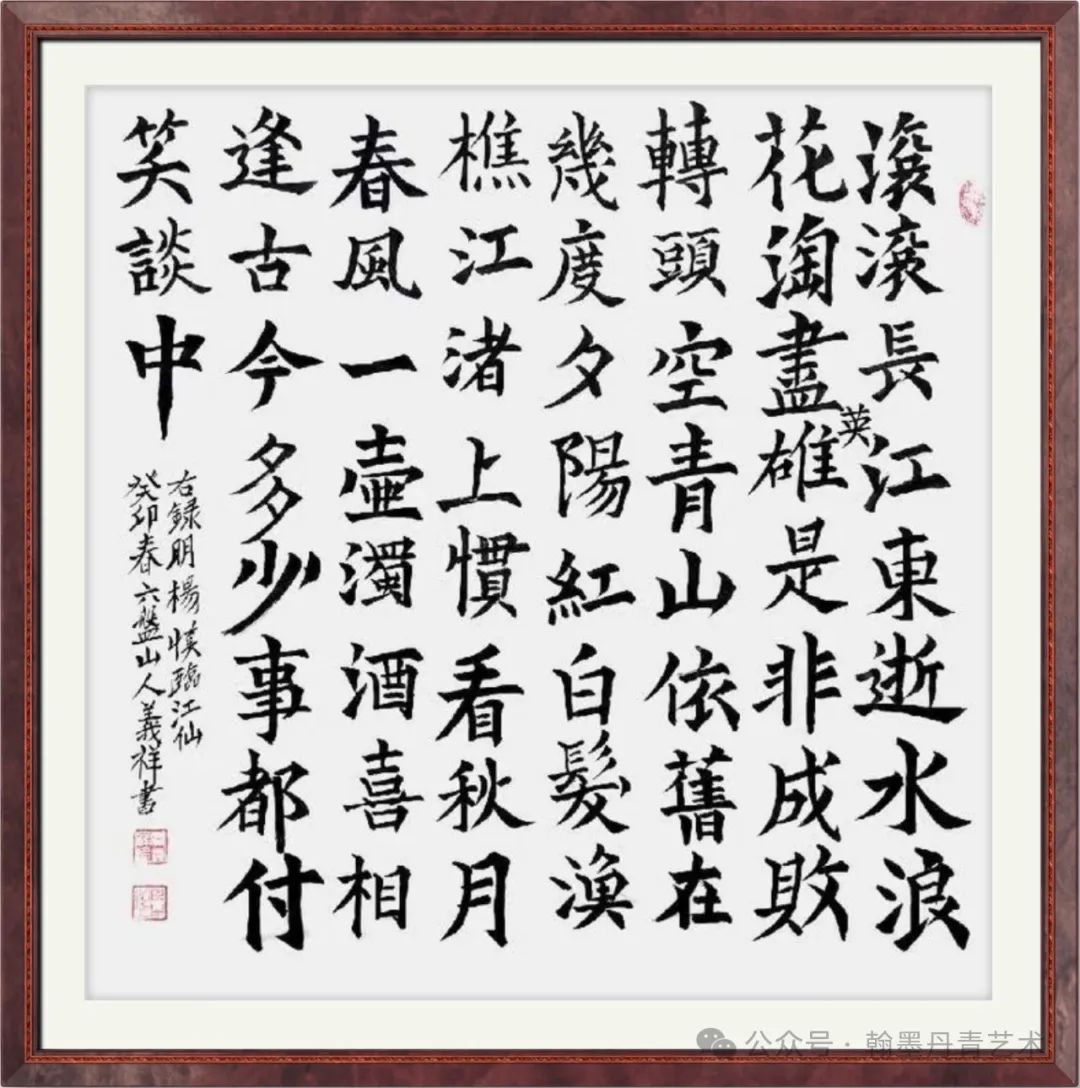 滾滾長江東逝水浪
花淘盡英雄是非成敗
轉頭空青山依舊在
幾度夕陽紅白髮漁
樵江渚上慣看秋月
春風一壺濁酒喜相
逢古今多少事都付
笑談中
右録明楊慎臨江仙
癸卯春六盤山人義祥書
公众号·翰墨丹青艺术